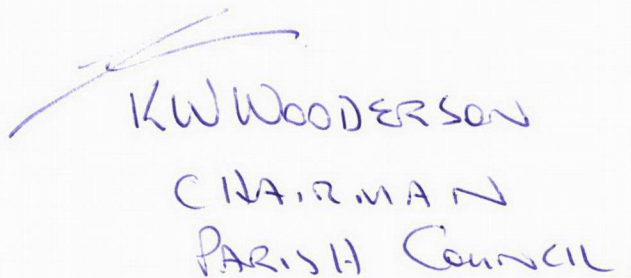 KW WOODERSON
CHAIRMAN
PARISH COUNCIL